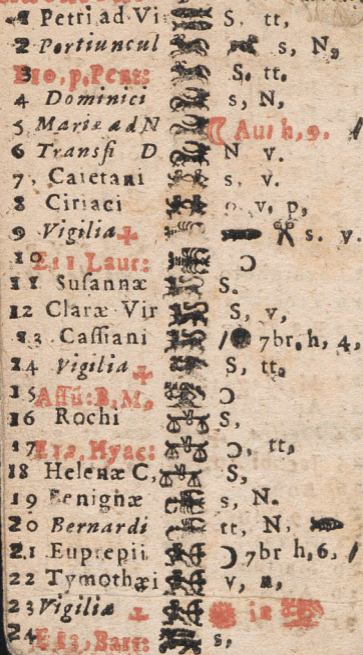 1 Petri ad Vi S. tt,
2 Portiuncul s, N,
3 E10, p, Pent: S. tt.
4 Dominici s, N,
5 Mariæ ad N Au: h, 9.
6 Transfi D N v.
7, Caietani s, v.
8 Ciriaci v, p,
9 Vigilia s. v.
10 E11 Laur:
11 Susannæ S.
12 Claræ Vir S, v,
13 Cassiani 7br, h, 4,
14 Vigilia S, tt,
15 Assũ: B. M,
16 Rochi S,
17 Hyac: tt,
18 Helenæ C, S,
19 Benignæ s, N.
20 Bernardi tt, N,
21 Euprepii 7br h, 6,
22 Tymothæi v,
23 Vigiliæ in
24 E13, Bart: s,